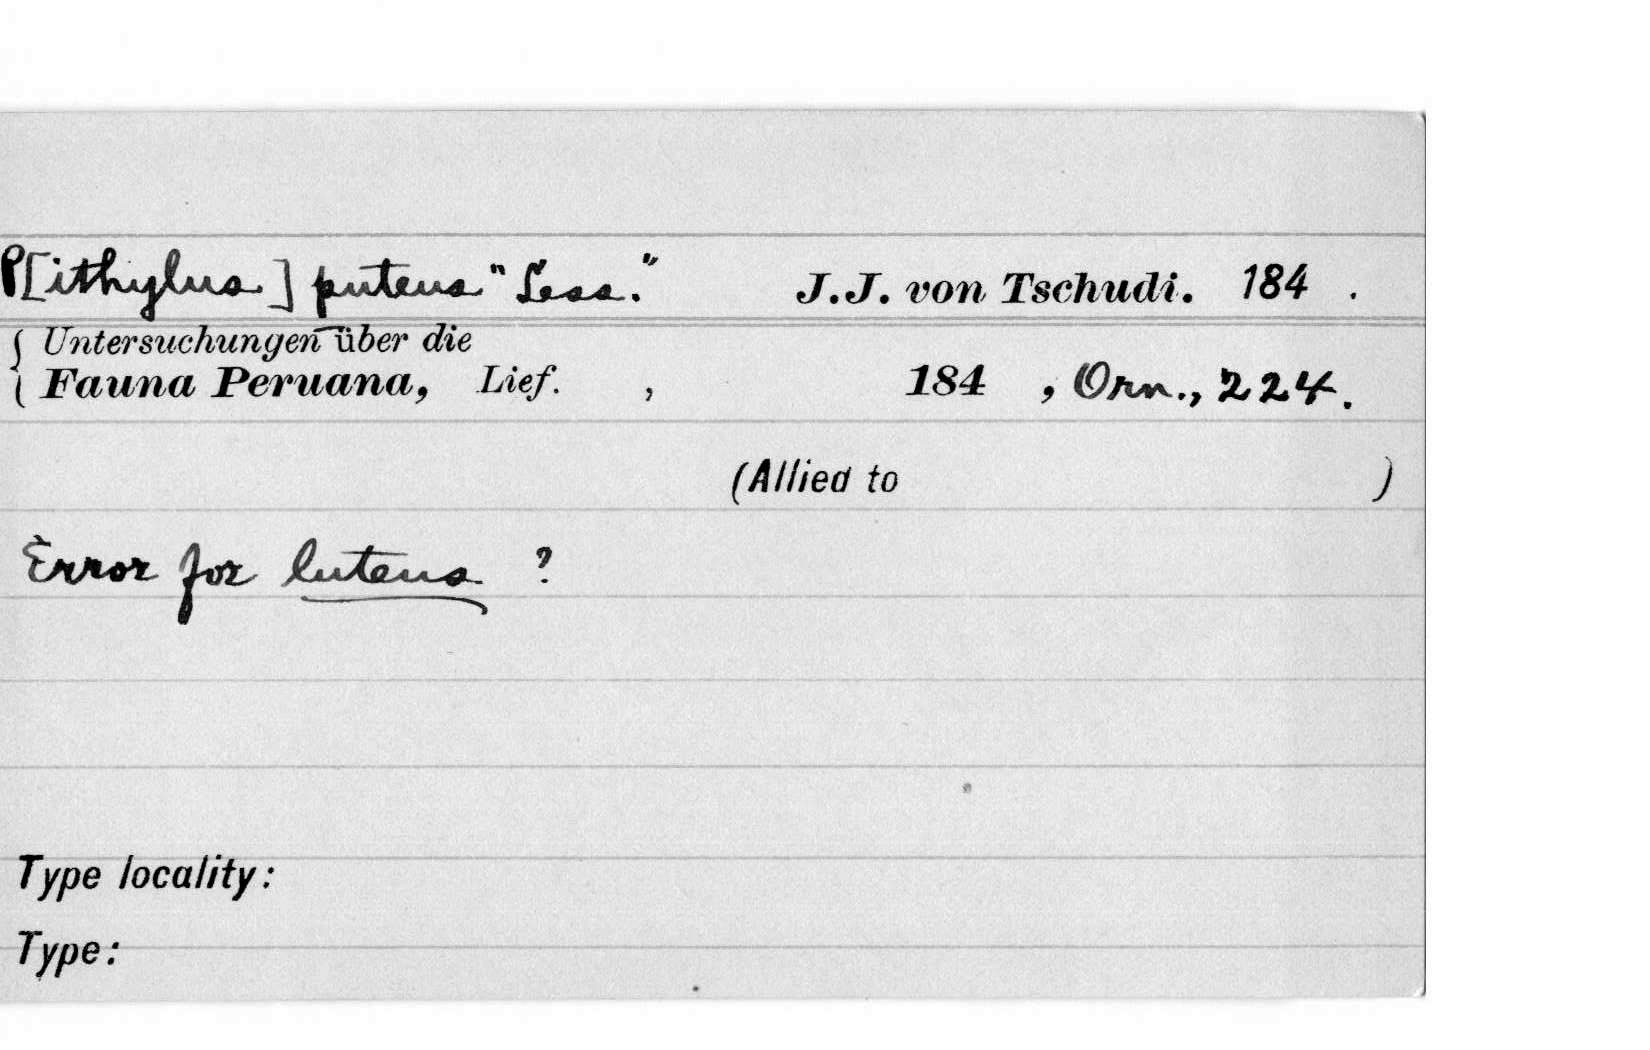 P[ithylus] puteus "Less." J.J. von Tschudi. 184 .
{ Untersuchungen über die
Fauna Peruana, Lief. , 184 , Orn., 224.
(Allied to )
Error for luteus ?
Type locality:
Type: